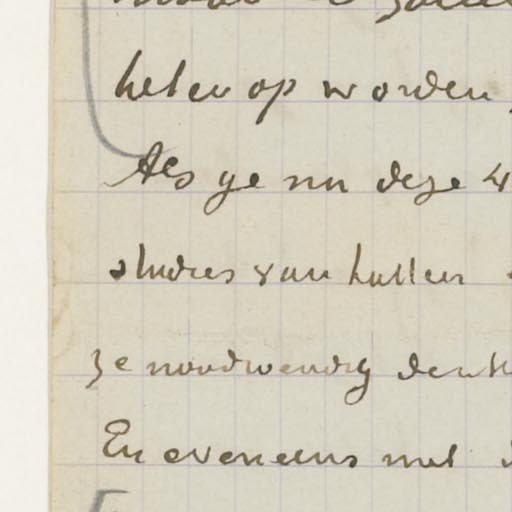 beter op worden
Als ge nu deze 4
studies van hutten
ze noodwendig denk
En eveneens met